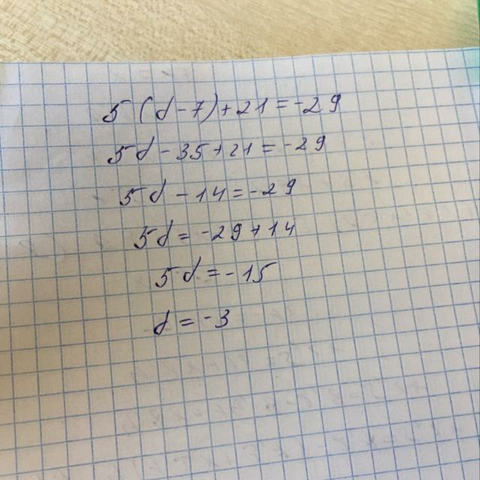 5(d-7)+21=-29
5d-35+21=-29
5d-14=-29
5d=-29+14
5d=-15
d=-3